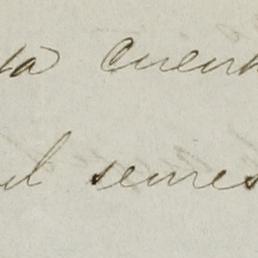 la cuen
el semes